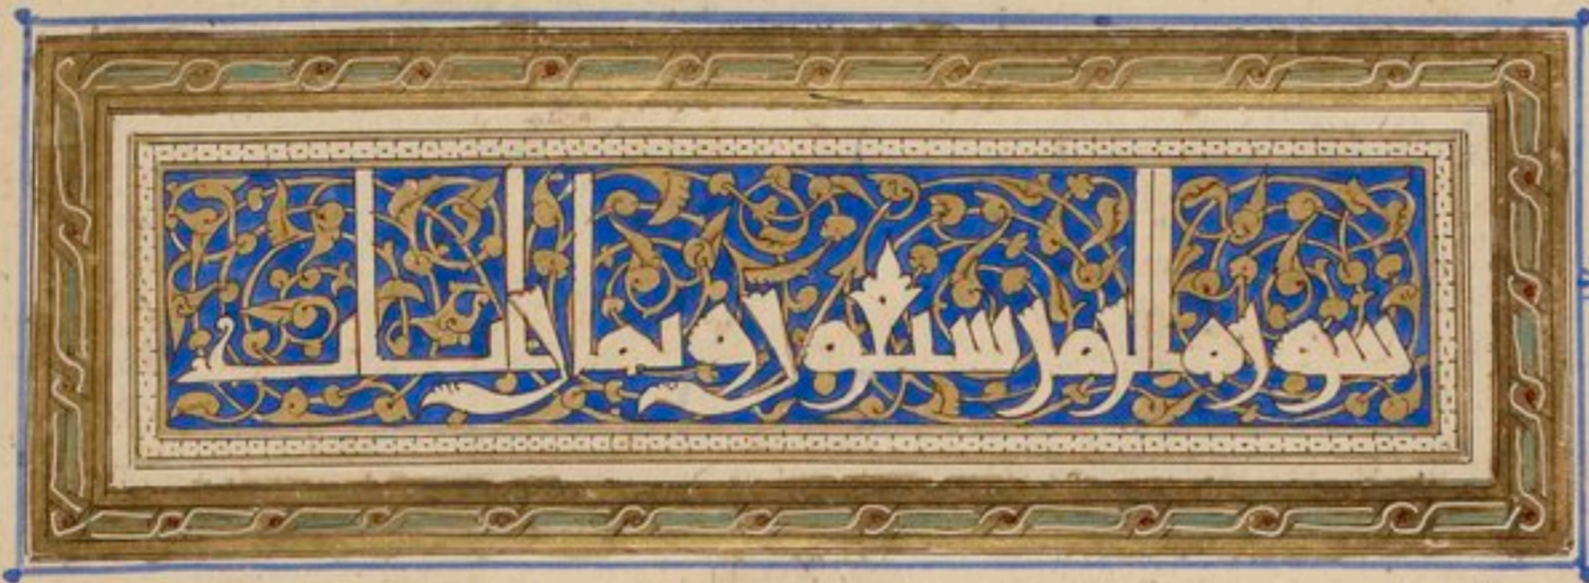 سورة الرحمن سبعون وثمان ايات